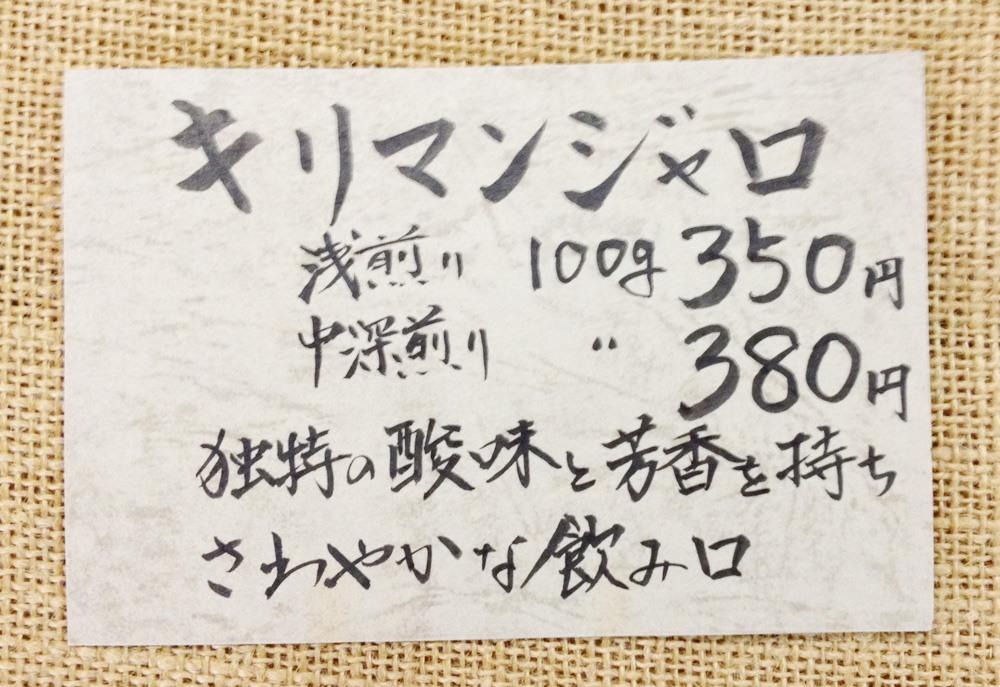 キリマンジャロ
浅煎り 100g 350円
中深煎り 〃 380円
独特の酸味と芳香を持ち
さわやかな飲み口